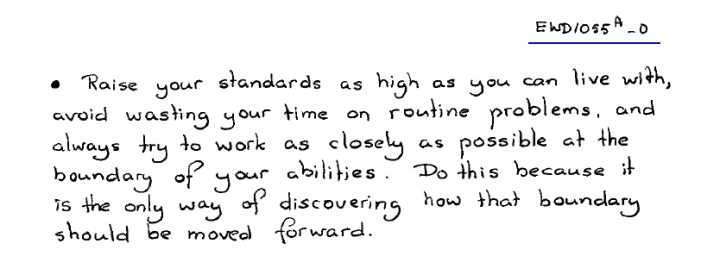 EWD1055A-0
• Raise your standards as high as you can live with,
avoid wasting your time on routine problems, and
always try to work as closely as possible at the
boundary of your abilities. Do this because it
is the only way of discovering how that boundary
should be moved forward.